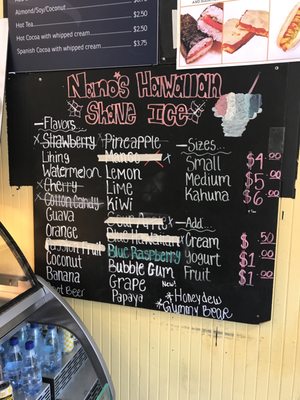 Almond/Soy/Coconut $.50
Hot Tea $2.50
Hot Cocoa with whipped cream $2.50
Spanish Cocoa with whipped cream $3.75
Nano's Hawaiian
Shave Ice
Flavors...
Strawberry
Lihing
Watermelon
Cherry
Cotton Candy
Guava
Orange
Passion Fruit
Coconut
Banana
Root Beer
Pineapple
Mango
Lemon
Lime
Kiwi
Sour Apple
Blue Hawaiian
Blue Raspberry
Bubble Gum
Grape
Papaya
New!
*Honeydew
*Gummy Bear
Sizes...
Small $4.00
Medium $5.00
Kahuna $6.00
Add...
Cream $.50
Yogurt $1.00
Fruit $1.00